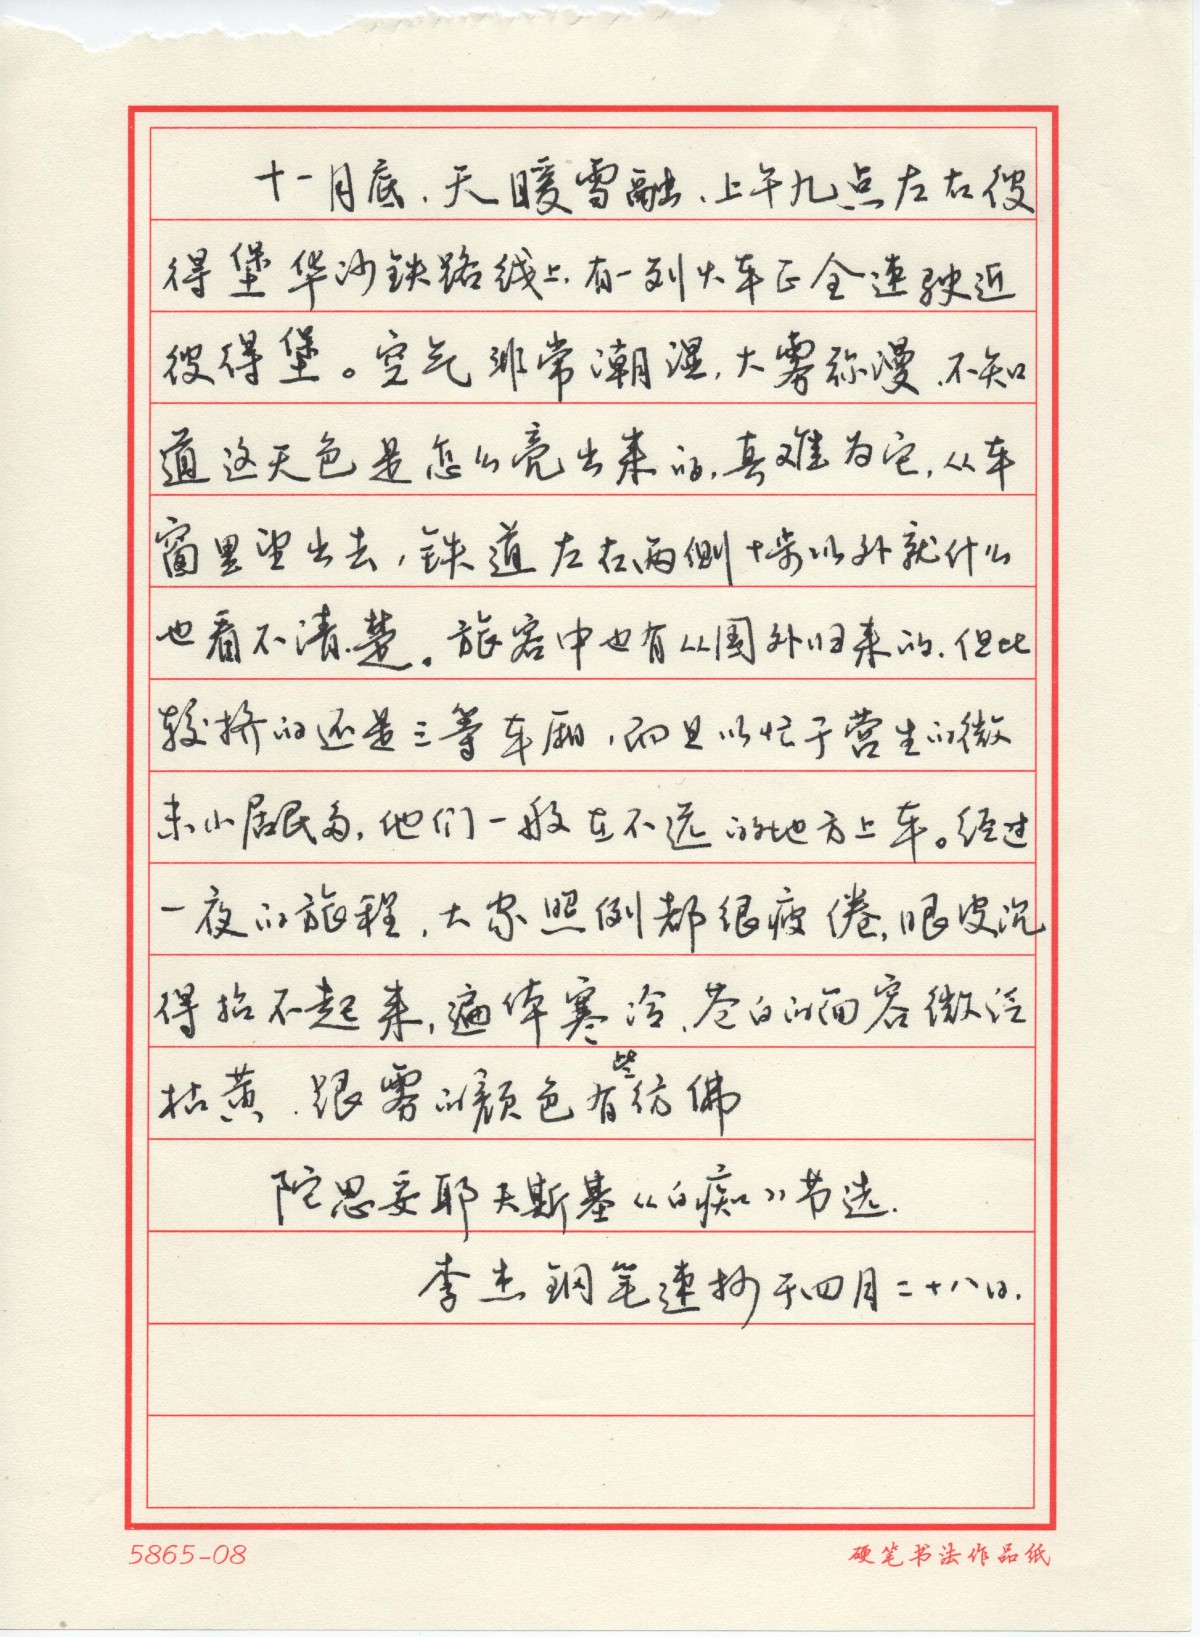 十一月底、天暖雪融、上午九点左右彼
得堡华沙铁路线上,有一列火车正全速驶近
彼得堡。空气非常潮湿,大雾弥漫、不知
道这天色是怎么亮出来的,真难为它,从车
窗里望出去,铁道左右两侧十步以外就什么
也看不清楚。旅客中也有从国外归来的、但比
较挤的还是三等车厢,而且以忙于营生的微
末小居民多,他们一般在不远的地方上车。经过
一夜的旅程,大家照例都很疲倦,眼皮沉
得抬不起来,遍体寒冷、苍白的面容微泛
枯黄、跟雾的颜色有些仿佛
陀思妥耶夫斯基《白痴》节选.
李杰钢笔速抄于四月二十八日.
5865-08 硬笔书法作品纸